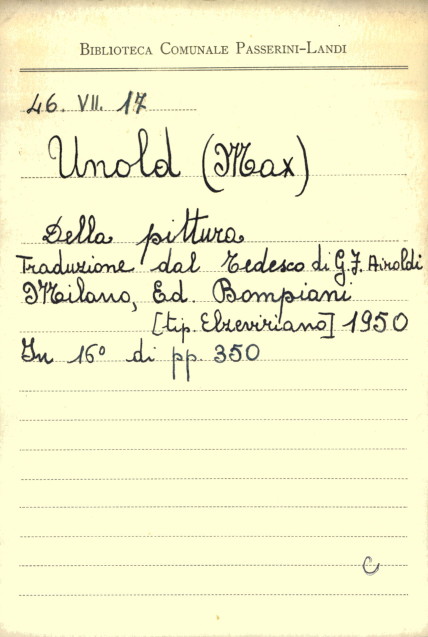 BIBLIOTECA COMUNALE PASSERINI-LANDI
46. VII. 17
Unold (Max)
Della pittura
Traduzione dal Tedesco di G.F. Airoldi
Milano, Ed. Bompiani
[tip. Elzeviriano] 1950
In 16° di pp. 350
C